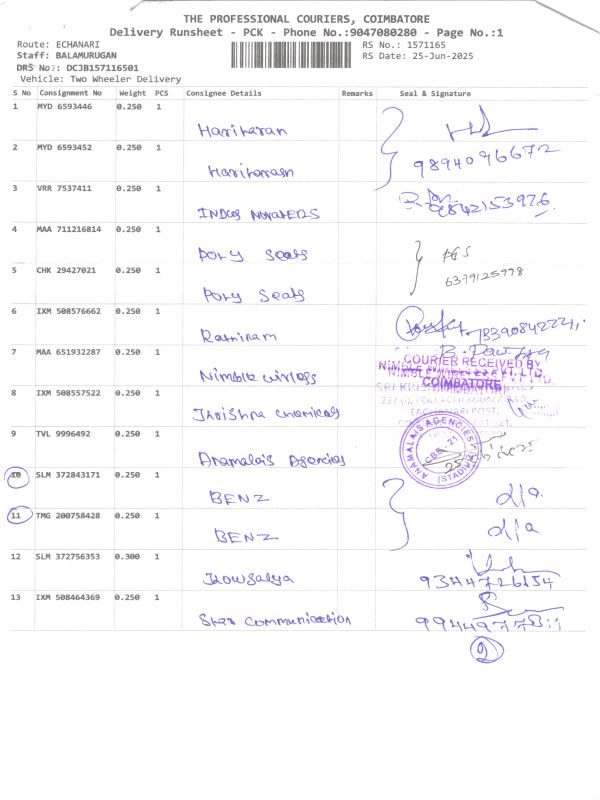 THE PROFESSIONAL COURIERS, COIMBATORE
Delivery Runsheet - PCK - Phone No.:9047080280 - Page No.:1
Route: ECHANARI
RS No.: 1571165
Staff: BALAMURUGAN
RS Date: 25-Jun-2025
DRS No.: DCJB157116501
Vehicle: Two Wheeler Delivery
S No Consignment No Weight PCS Consignee Details Remarks Seal & Signature
1 MYD 6593446 0.250 1
Hariharan
2 MYD 6593452 0.250 1
Hariharan 9894096672
3 VRR 7537411 0.250 1
9842153926
4 MAA 711216814 0.250 1
Pory Seats
5 CHK 29427021 0.250 1
6379125998
Pory Seats
6 IXM 508576662 0.250 1
7 MAA 651932287 0.250 1
COURIER RECEIVED BY
Nimble wirless
COIMBATORE
8 IXM 508557522 0.250 1
9 TVL 9996492 0.250 1
ANAMALAIS AGENCIES
CBE-21
(STADIUM)
Anamalais Agencies
10 SLM 372843171 0.250 1
BENZ d/a
11 TMG 200758428 0.250 1
BENZ d/a
12 SLM 372756353 0.300 1
9344726154
13 IXM 508464369 0.250 1
Star Communication
2